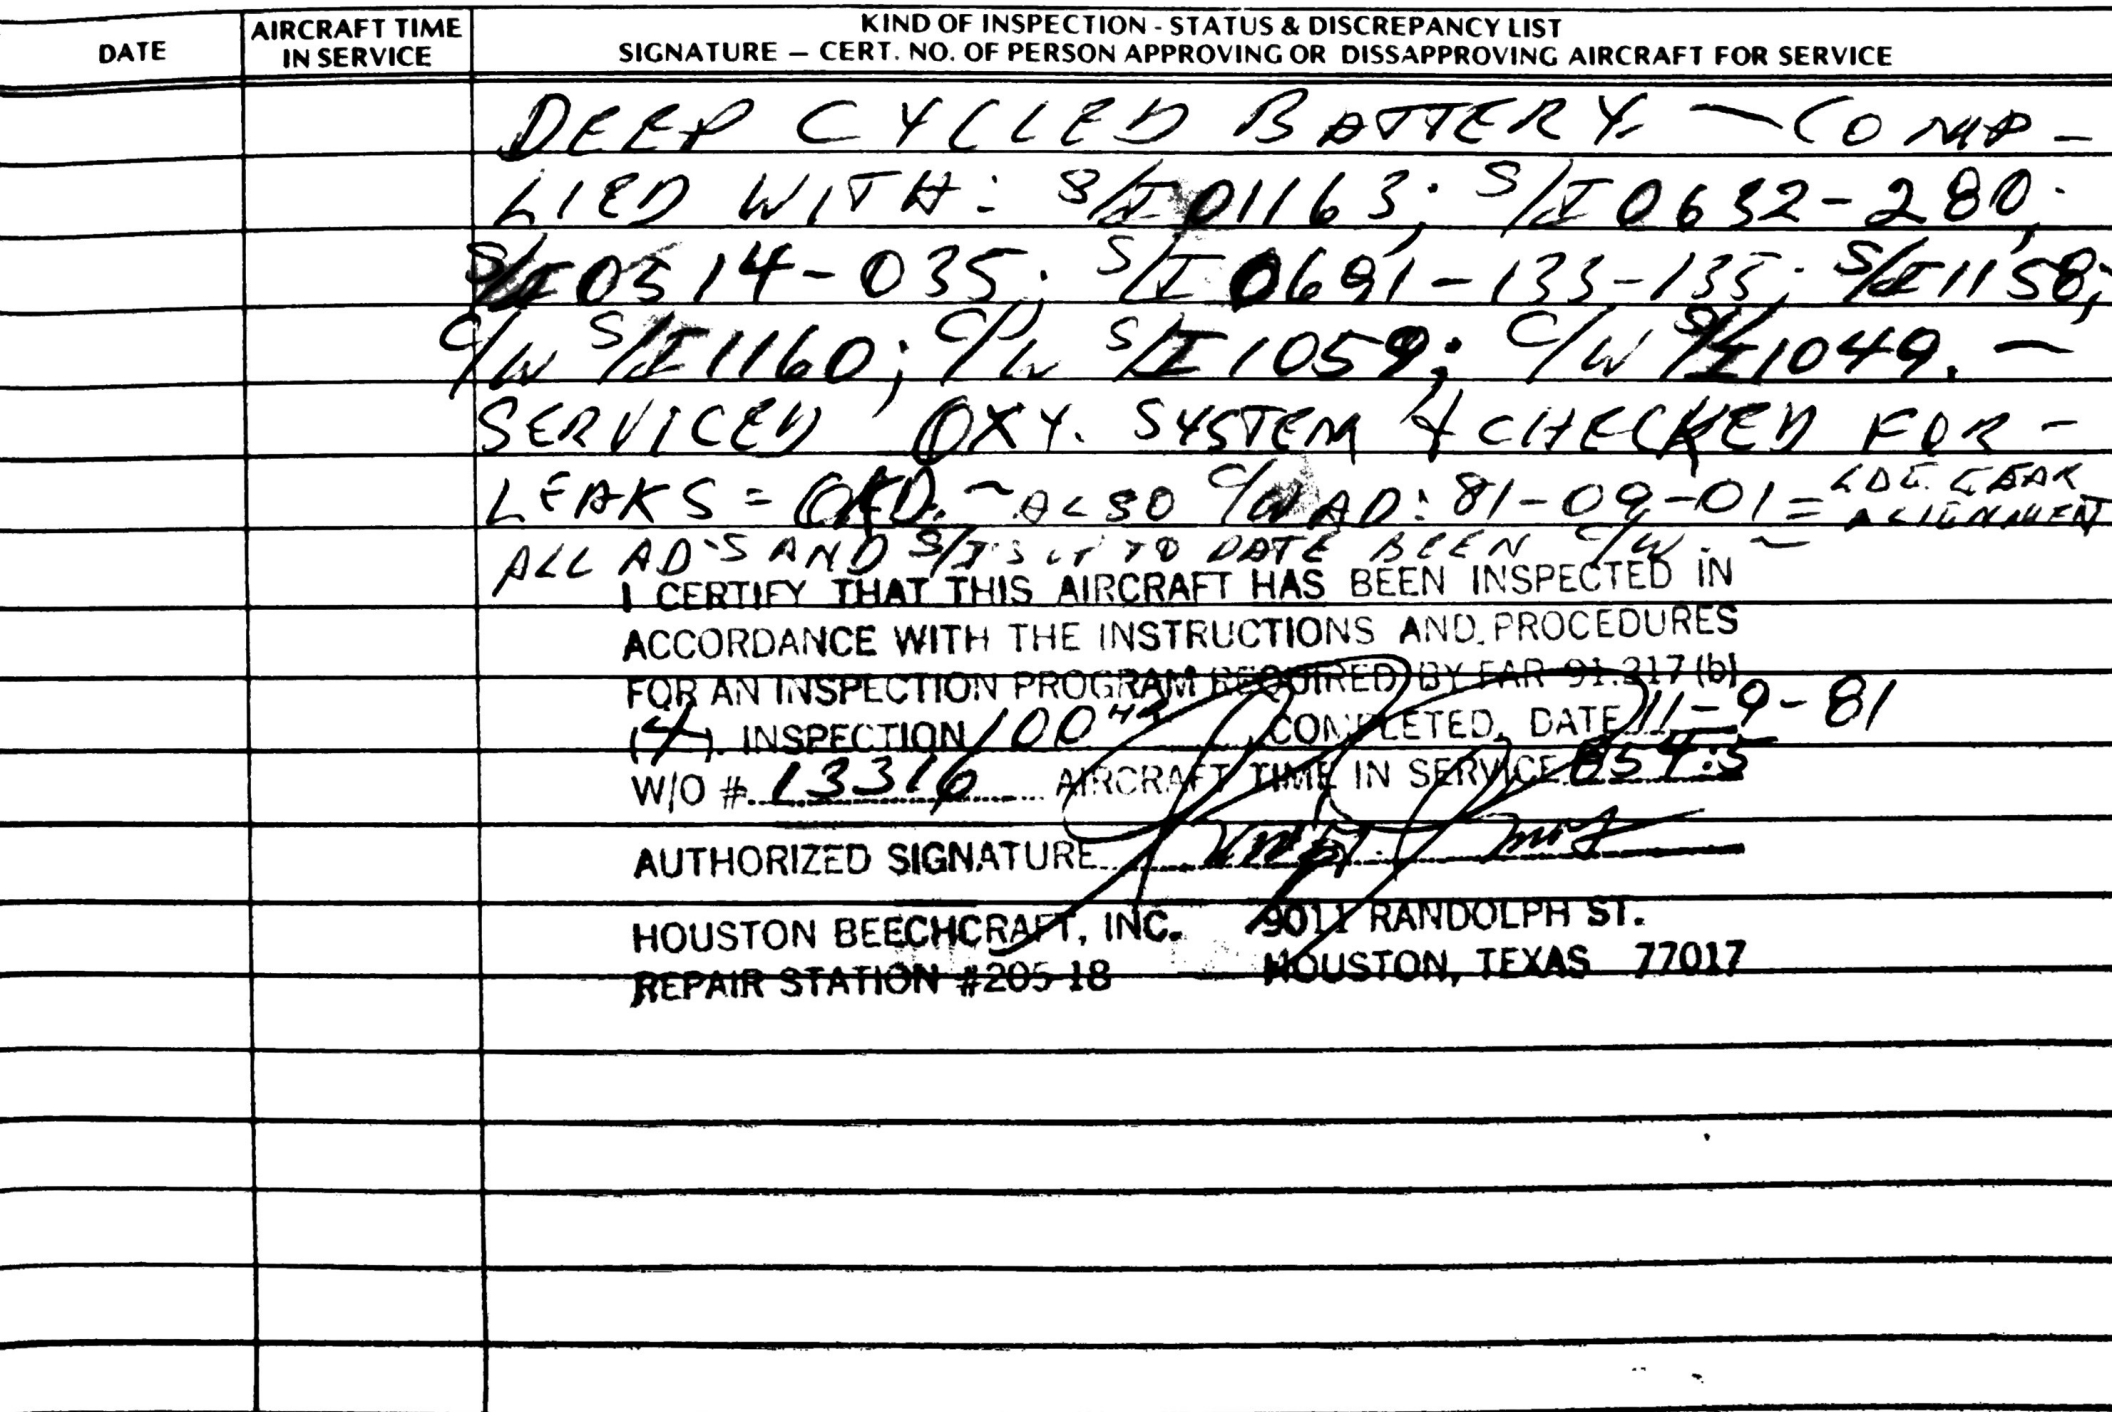 DATE
AIRCRAFT TIME
IN SERVICE
KIND OF INSPECTION - STATUS & DISCREPANCY LIST
SIGNATURE — CERT. NO. OF PERSON APPROVING OR DISSAPPROVING AIRCRAFT FOR SERVICE
DEEP CYCLED BATTERY. — COMP -
LIED WITH: S/I 01163; S/I 0632-280;
S/I 0514-035; S/I 0691-133-135; S/I 1158;
C/W S/I 1160; C/W S/I 1059; C/W S/I 1049. —
SERVICED OXY. SYSTEM & CHECKED FOR -
LEAKS = OKD. — ALSO C/W AD: 81-09-01 = LDG GEAR
ALIGNMENT
ALL AD'S AND S/I'S UP TO DATE BEEN C/W. —
I CERTIFY THAT THIS AIRCRAFT HAS BEEN INSPECTED IN
ACCORDANCE WITH THE INSTRUCTIONS AND PROCEDURES
FOR AN INSPECTION PROGRAM REQUIRED BY FAR 91.217 (b)
(4). INSPECTION 100 HR COMPLETED, DATE 11-9-81
W/O # 13316 AIRCRAFT TIME IN SERVICE 854.5
AUTHORIZED SIGNATURE
HOUSTON BEECHCRAFT, INC. 9011 RANDOLPH ST.
REPAIR STATION #205-18 HOUSTON, TEXAS 77017